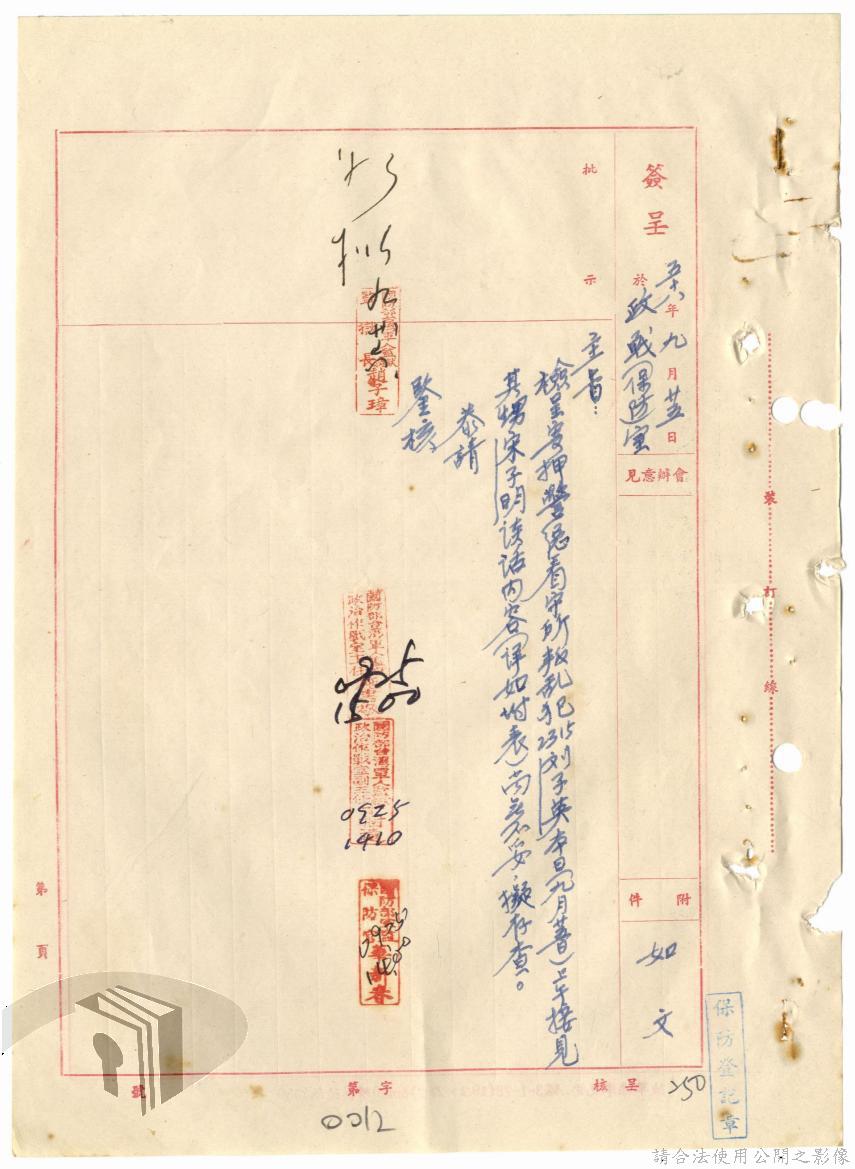 簽呈
於
五十八年九月廿五日
政戰(保防)室
會辦意見
附件
如文
批示
主旨：
檢呈寄押警總看守所叛乱犯2315刘子英本日(九月廿五日)上午接見
其甥宋子明談話內容(詳如附表)尚無不妥，擬存查。
恭請
鑒核
如擬
趙子璋
0925
1500
0925
1410
保防
0925
呈核
字第
號
第頁
裝訂線
250
0012
保防登記章
請合法使用公開之影像